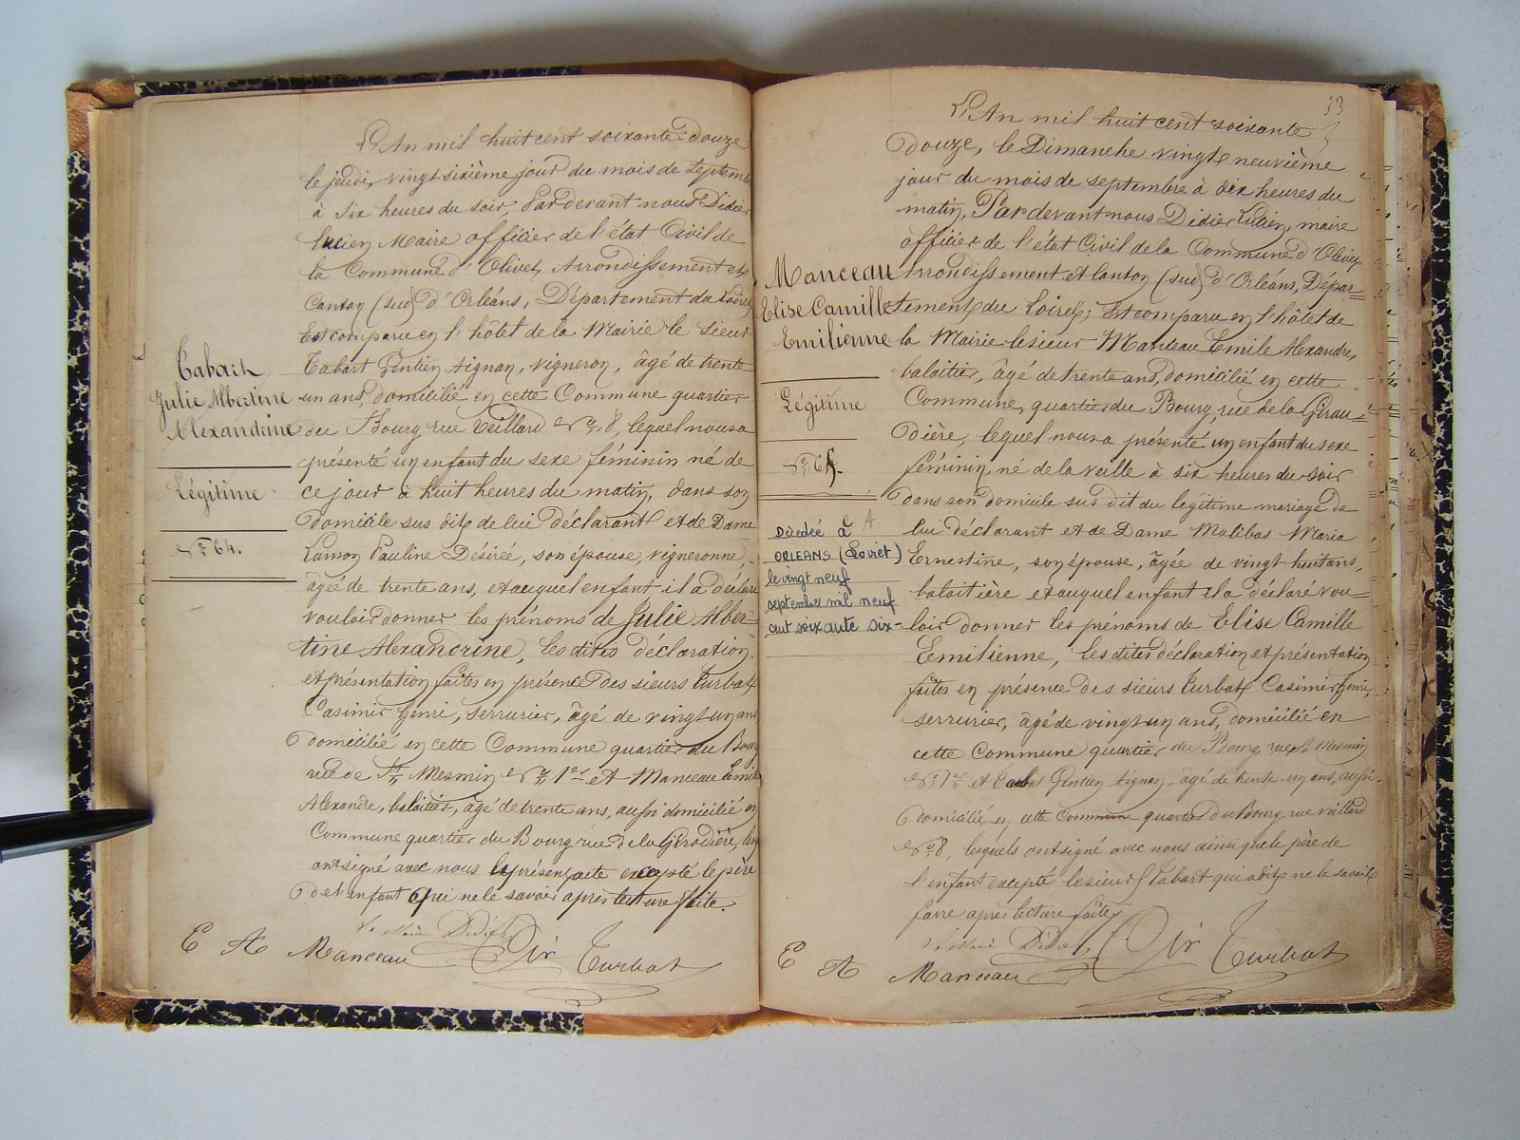 L'An mil huit cent soixante-douze
le jeudi, vingt sixième jour du mois de Septem
à Six heures du soir, Pardevant nous Didier
Lucien Maire officier de l'état Civil de
la Commune d'Olivet, Arrondissement et
Canton (sud) d'Orléans, Département du Loiret
Est comparu en l'hôtel de la Mairie le Sieur
Tabart Gentien Aignan, vigneron, âgé de trente
un ans, domicilié en cette Commune quartier
du Bourg, rue Veillard N° 8, lequel nous a
présenté un enfant du sexe féminin né de
ce jour à huit heures du matin, dans son
domicile sus dit, de lui déclarant et de Dame
Pauline Désirée, son épouse, vigneronne,
âgée de trente ans, et auquel enfant il a déclaré
vouloir donner les prénoms de Julie Alber-
tine Alexandrine, Les dites déclaration
et présentation faites en présence des sieurs Turbat
Casimir Henri, serrurier, âgé de vingt un ans
domicilié en cette Commune quartier du Bourg
rue de St Mesmin N° 1er et Manceau Emile
Alexandre, balaitier, âgé de trente ans, aussi domicilié en
Commune quartier du Bourg rue de la Girodière,
ont signé avec nous le présent acte excepté le père
de l'enfant qui ne le savoir après lecture faite.
Le Maire Didier
E A Manceau Turbat
Tabart
Julie Albertine
Alexandrine
Légitime
N° 64.
33
L'An mil huit cent soixante
douze, le Dimanche vingt neuvième
jour du mois de septembre à dix heures du
matin, Pardevant nous Didier Lucien, maire
officier de l'état Civil de la Commune d'Olivet
Arrondissement et Canton (sud) d'Orléans, Dépar=
tement du Loiret; Est comparu en l'hôtel de
la Mairie le sieur Manceau Emile Alexandre,
balaitier, âgé de trente ans, domicilié en cette
Commune, quartier du Bourg, rue de la Girau=
dière, lequel nous a présenté un enfant du sexe
féminin, né de la veille à six heures du soir
dans son domicile sus dit du légitime mariage de
lui déclarant et de Dame Malibas Maria
Ernestine, son épouse, âgée de vingt huit ans,
balaitière et auquel enfant il a déclaré vou=
loir donner les prénoms de Elise Camille
Emilienne, les dites déclaration et présentation
faites en présence des sieurs Turbat Casimir Henri,
serrurier, âgé de vingt un ans, domicilié en
cette Commune quartier du Bourg rue St Mesmin
N° 1er et Tabart Gentien Aignan, âgé de trente un ans, aussi
domicilié en cette Commune quartier du Bourg rue Veillard
N° 8, lesquels ont signé avec nous ainsi que le père de
l'enfant excepté le sieur Tabart qui a dit ne le savoir
faire après lecture faite
Le Maire Didier
E A Manceau Turbat
Manceau
Elise Camille
Emilienne
Légitime
N° 65.
Décédée à
ORLEANS (Loiret)
le vingt neuf
septembre mil neuf
cent soixante six-